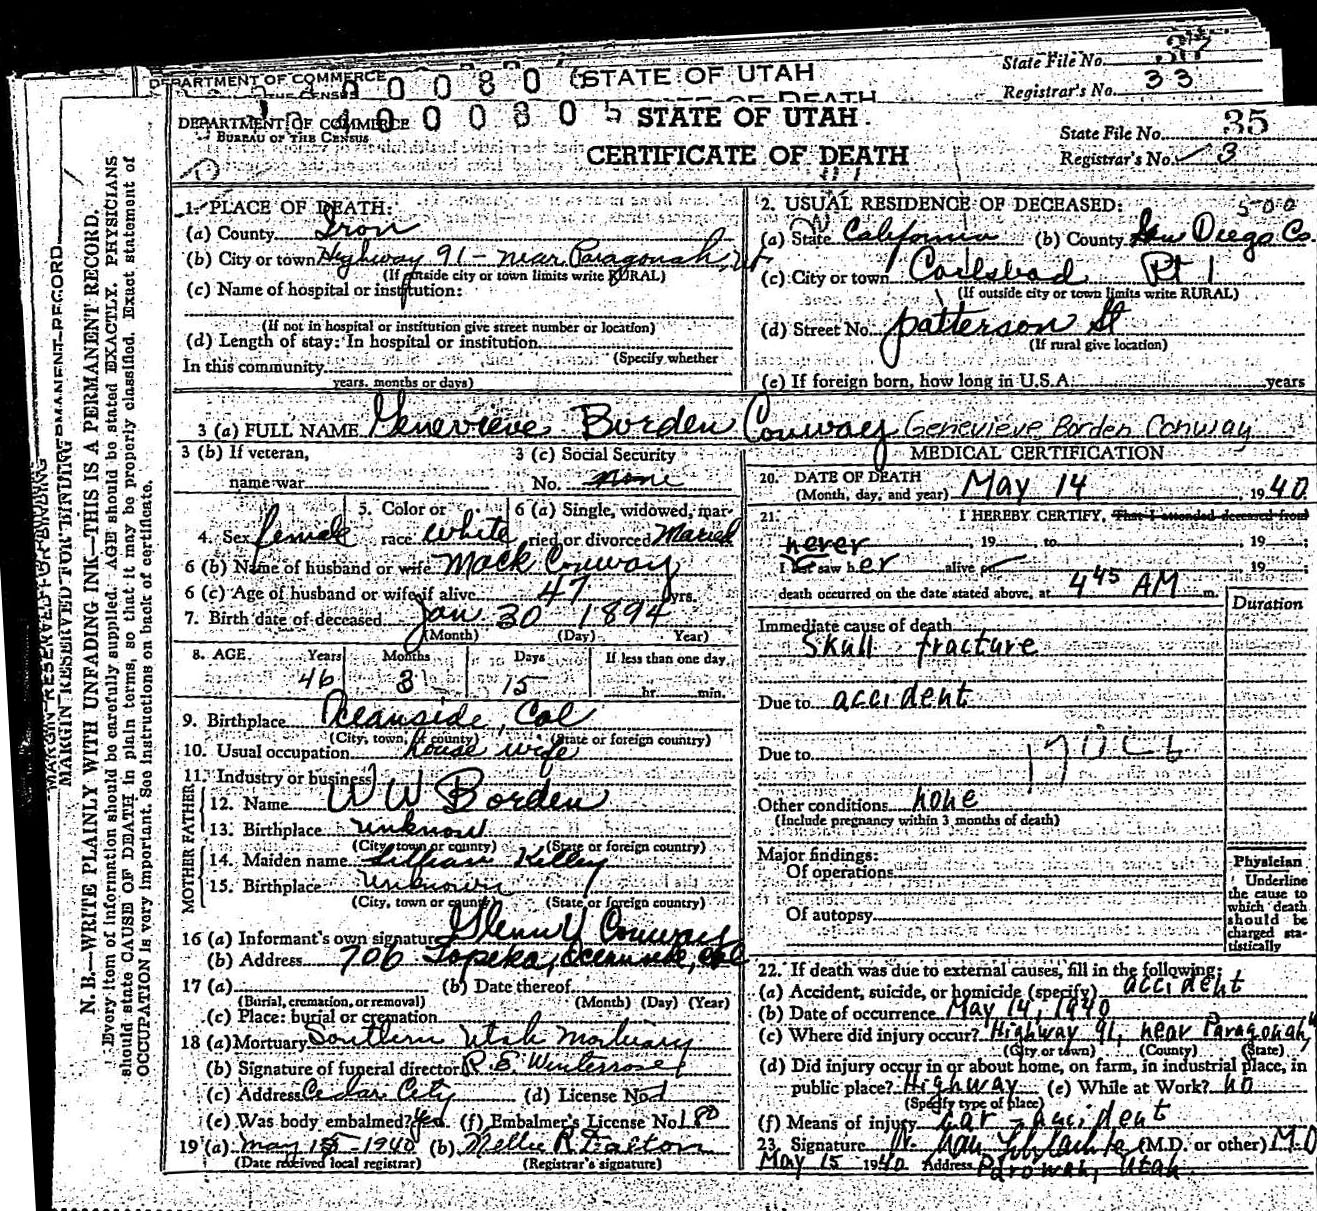 DEPARTMENT OF COMMERCE STATE OF UTAH State File No.
Registrar's No. 33
DEPARTMENT OF COMMERCE STATE OF UTAH State File No. 35
BUREAU OF THE CENSUS CERTIFICATE OF DEATH Registrar's No. 3
MARGIN RESERVED FOR BINDING
N. B.—WRITE PLAINLY WITH UNFADING INK—THIS IS A PERMANENT RECORD.
Every item of information should be carefully supplied. AGE should be stated EXACTLY. PHYSICIANS
should state CAUSE OF DEATH in plain terms, so that it may be properly classified. Exact statement of
OCCUPATION is very important. See instructions on back of certificate.
1. PLACE OF DEATH:
(a) County Iron
(b) City or town Highway 91 - near Paragonah, Ut
(If outside city or town limits write RURAL)
(c) Name of hospital or institution:
(If not in hospital or institution give street number or location)
(d) Length of stay: In hospital or institution
(Specify whether
In this community
years, months or days)
2. USUAL RESIDENCE OF DECEASED: 500
(a) State California (b) County San Diego Co.
(c) City or town Carlsbad Rt 1
(If outside city or town limits write RURAL)
(d) Street No. Patterson St
(If rural give location)
(e) If foreign born, how long in U.S.A. years
3 (a) FULL NAME Genevieve Borden Conway Genevieve Borden Conway
3 (b) If veteran, 3 (c) Social Security
name war No. none
4. Sex female 5. Color or race white 6 (a) Single, widowed, married or divorced Married
6 (b) Name of husband or wife Mack Conway
6 (c) Age of husband or wife if alive 47 yrs.
7. Birth date of deceased Jan 30 1894
(Month) (Day) Year)
8. AGE Years Months Days If less than one day
46 3 15 hr. min.
9. Birthplace Oceanside, Cal
(City, town, or county) (State or foreign country)
10. Usual occupation house wife
11. Industry or business
FATHER
12. Name W W Borden
13. Birthplace unknown
(City, town or county) (State or foreign country)
MOTHER
14. Maiden name Lillian Kelley
15. Birthplace Unknown
(City, town or county) (State or foreign country)
16 (a) Informant's own signature Glenn Y Conway
(b) Address 706 Topeka, Oceanside, Cal
17 (a) (b) Date thereof
(Burial, cremation, or removal) (Month) (Day) (Year)
(c) Place: burial or cremation
18 (a) Mortuary Southern Utah Mortuary
(b) Signature of funeral director R. E. Winterrose
(c) Address Cedar City (d) License No. 1
(e) Was body embalmed? Yes (f) Embalmer's License No. 180
19 (a) May 15 - 1940 (b) Nellie R Dalton
(Date received local registrar) (Registrar's signature)
MEDICAL CERTIFICATION
20. DATE OF DEATH
(Month, day, and year) May 14, 1940
21. I HEREBY CERTIFY, That I attended deceased from
never, 19 to , 19 ;
I last saw her alive on , 19 ;
death occurred on the date stated above, at 4 45 AM m.
Duration
Immediate cause of death
Skull fracture
Due to accident
Due to
Other conditions none
(Include pregnancy within 3 months of death)
Major findings:
Of operations
Of autopsy
Physician
Underline
the cause to
which death
should be
charged sta-
tistically
22. If death was due to external causes, fill in the following:
(a) Accident, suicide, or homicide (specify) accident
(b) Date of occurrence May 14, 1940
(c) Where did injury occur? Highway 91, near Paragonah,
(City or town) (County) (State)
(d) Did injury occur in or about home, on farm, in industrial place, in
public place? Highway (e) While at Work? no
(Specify type of place)
(f) Means of injury car accident
23. Signature (M.D. or other) M.D
May 15 1940 Address Parowan, Utah